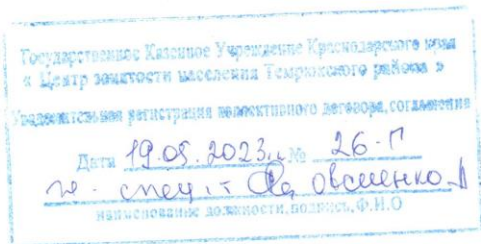 Государственное Казенное Учреждение Краснодарского края
« Центр занятости населения Темрюкского района »
Уведомительная регистрация коллективного договора, соглашения
Дата 19.05.2023г. № 26-П
наименование должности, подпись, Ф.И.О